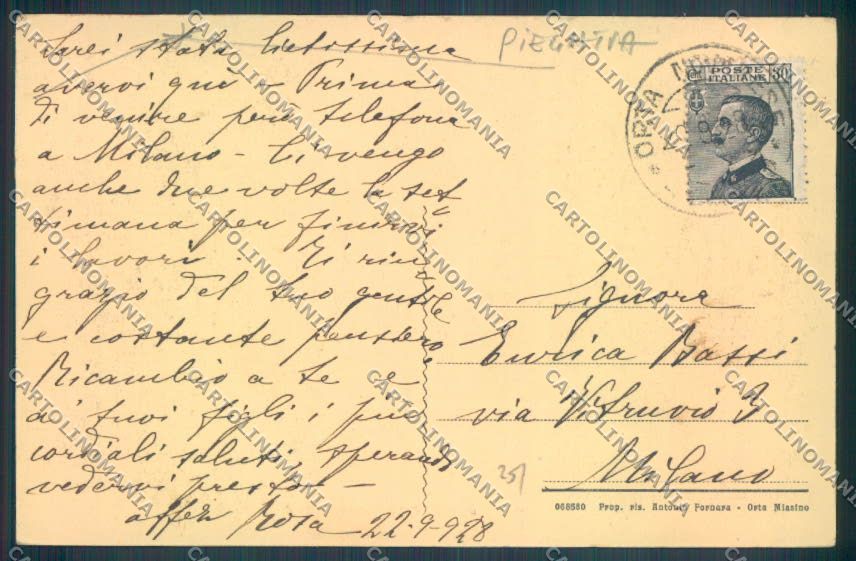 Sarei stata lietissima
avervi qui - Prima
di venire però telefona
a Milano - Ci vengo
anche due volte la set
timana per finirvi
i lavori. Ti rin
grazio del tuo gentile
e costante pensiero.
Ricambio a te e
a' tuoi figli i più
cordiali saluti, sperando
vedervi presto -
affez Rosa 22-9-928
PIEGHINA
POSTE
ITALIANE
30
ORTA
Signora
Enrica Bassi
via Vitruvio 3
Milano
251
068580 Prop. ris. Antonio Fornara - Orta Miasino
CARTOLINOMANIA